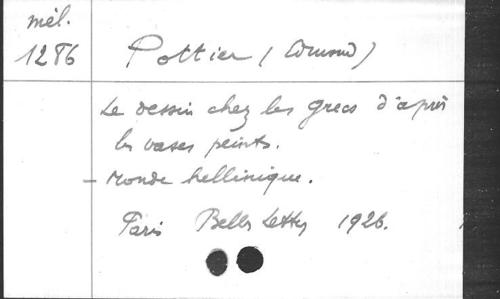 mél.
1286
Pottier (Edmond)
Le dessin chez les grecs d'après
les vases peints.
- Monde hellénique.
Paris Belles Lettres 1926.